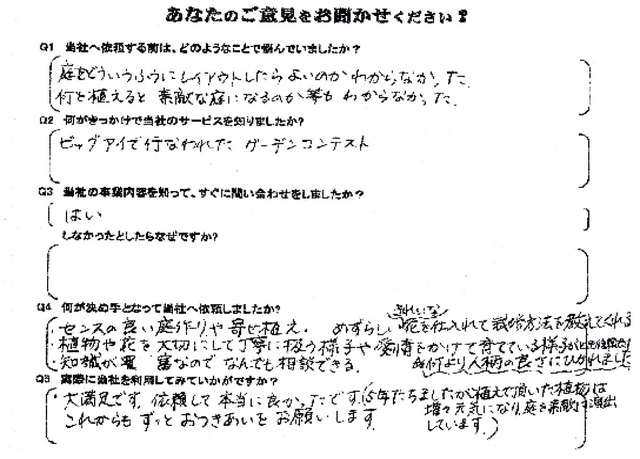 あなたのご意見をお聞かせください?
Q1 当社へ依頼する前は、どのようなことで悩んでいましたか?
庭をどういうふうにレイアウトしたらよいのかわからなかった。
何を植えると素敵な庭になるのか等もわからなかった。
Q2 何がきっかけで当社のサービスを知りましたか?
ビッグアイで行なわれたガーデンコンテスト
Q3 当社の事業内容を知って、すぐに問い合わせをしましたか?
はい
しなかったとしたらなぜですか?
Q4 何が決め手となって当社へ依頼しましたか?
きれいな
・センスの良い庭作りや寄せ植え・めずらしい花を仕入れて栽培方法を教えてくれる
・植物や花を大切にして丁寧に扱う様子や愛情をかけて育てている様子が
・知識が豊富なのでなんでも相談できる。 何より人柄の良さにひかれました
Q5 実際に当社を利用してみていかがですか?
・大満足です。依頼して本当に良かったです。(5年たちましたが植えて頂いた植物は
増々元気になり、庭を素敵に演出
これからもずっとおつきあいをお願いします。 しています。)